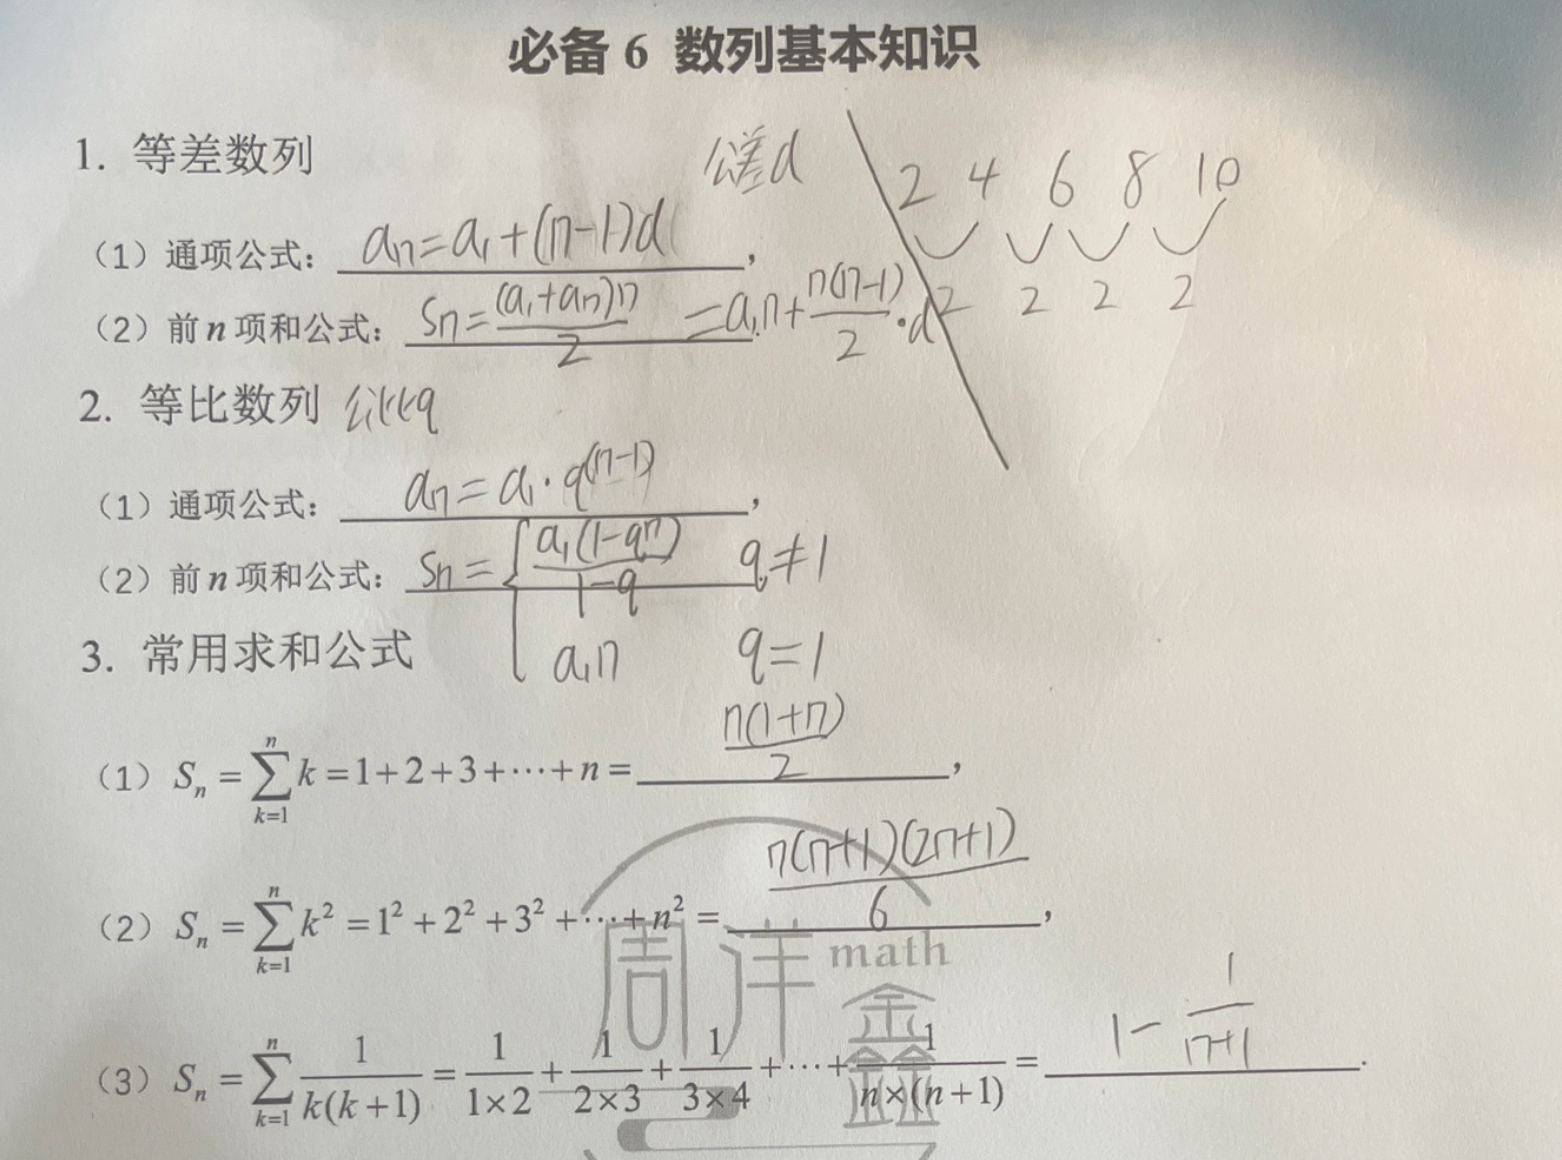 必备 6 数列基本知识
1. 等差数列 公差d
2 4 6 8 10
2 2 2 2
（1）通项公式： an=a₁+(n-1)d ，
（2）前 n 项和公式： Sn=(a₁+an)n/2 =a₁n+n(n-1)/2·d
2. 等比数列 公比q
（1）通项公式： an=a₁·q^(n-1) ，
（2）前 n 项和公式： Sn={a₁(1-qⁿ)/(1-q) q≠1
a₁n q=1
3. 常用求和公式
（1）Sₙ=∑ₖ₌₁ⁿ k=1+2+3+···+n= n(1+n)/2 ，
（2）Sₙ=∑ₖ₌₁ⁿ k²=1²+2²+3²+···+n²= n(n+1)(2n+1)/6 ，
周洋 math
鑫
（3）Sₙ=∑ₖ₌₁ⁿ 1/(k(k+1))=1/(1×2)+1/(2×3)+1/(3×4)+···+1/(n×(n+1))= 1-1/(n+1) .